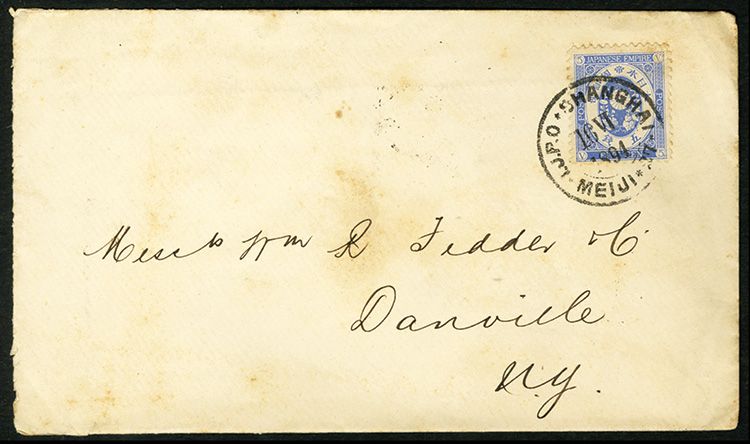 JAPANESE EMPIRE
5 5
I.J.P.O • SHANGHAI
16 VI
1894
MEIJI
Wm R Fedder & C°
Danville
N.Y.